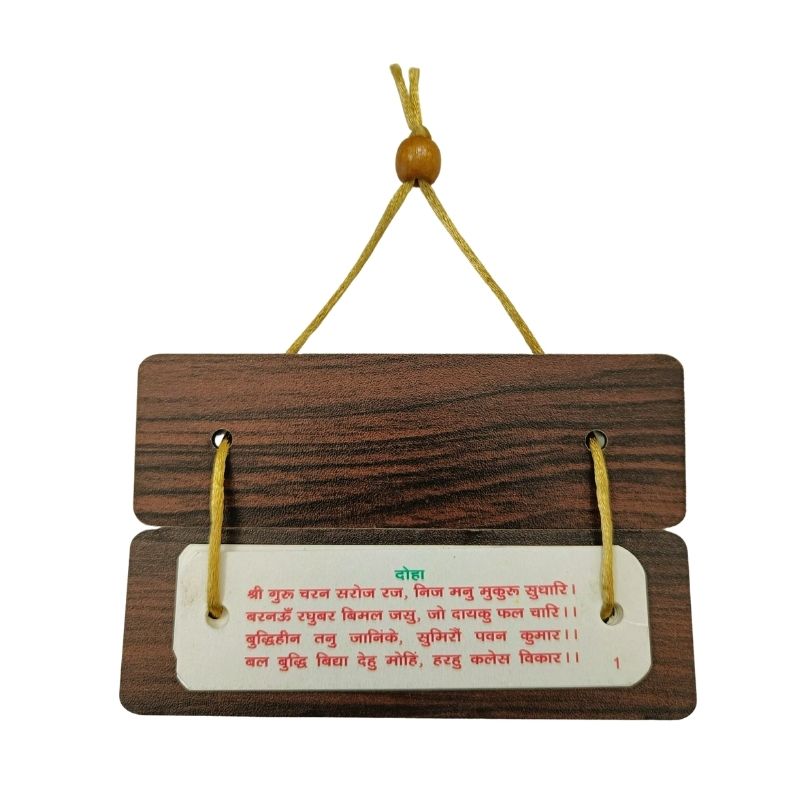 दोहा
श्री गुरू चरन सरोज रज, निज मनु मुकुरू सुधारि।
बरनऊँ रघुबर बिमल जसु, जो दायकु फल चारि।।
बुद्धिहीन तनु जानिंके, सुमिरौं पवन कुमार।।
बल बुद्धि बिद्या देहु मोहिं, हरहु कलेस विकार।।
1